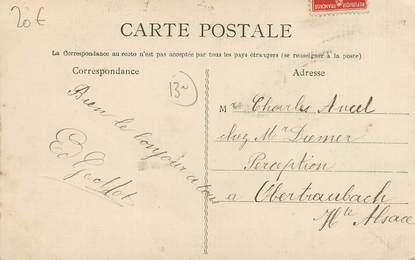 20€
FRANÇAISE
CARTE POSTALE
La Correspondance au recto n'est pas acceptée par tous les pays étrangers (se renseigner à la poste)
Correspondance
Adresse
Bien le bonjour a tous
Ed
Mr Charles Ancel
chez Mr Diemer
Perception
a Obertraubach
Hte Alsace